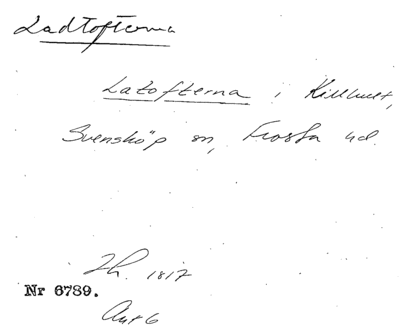 Ladtofterna
Latofterna i Killhult,
Svensköp sn, Frosta hd.
Jh. 1817
Nr 6789.